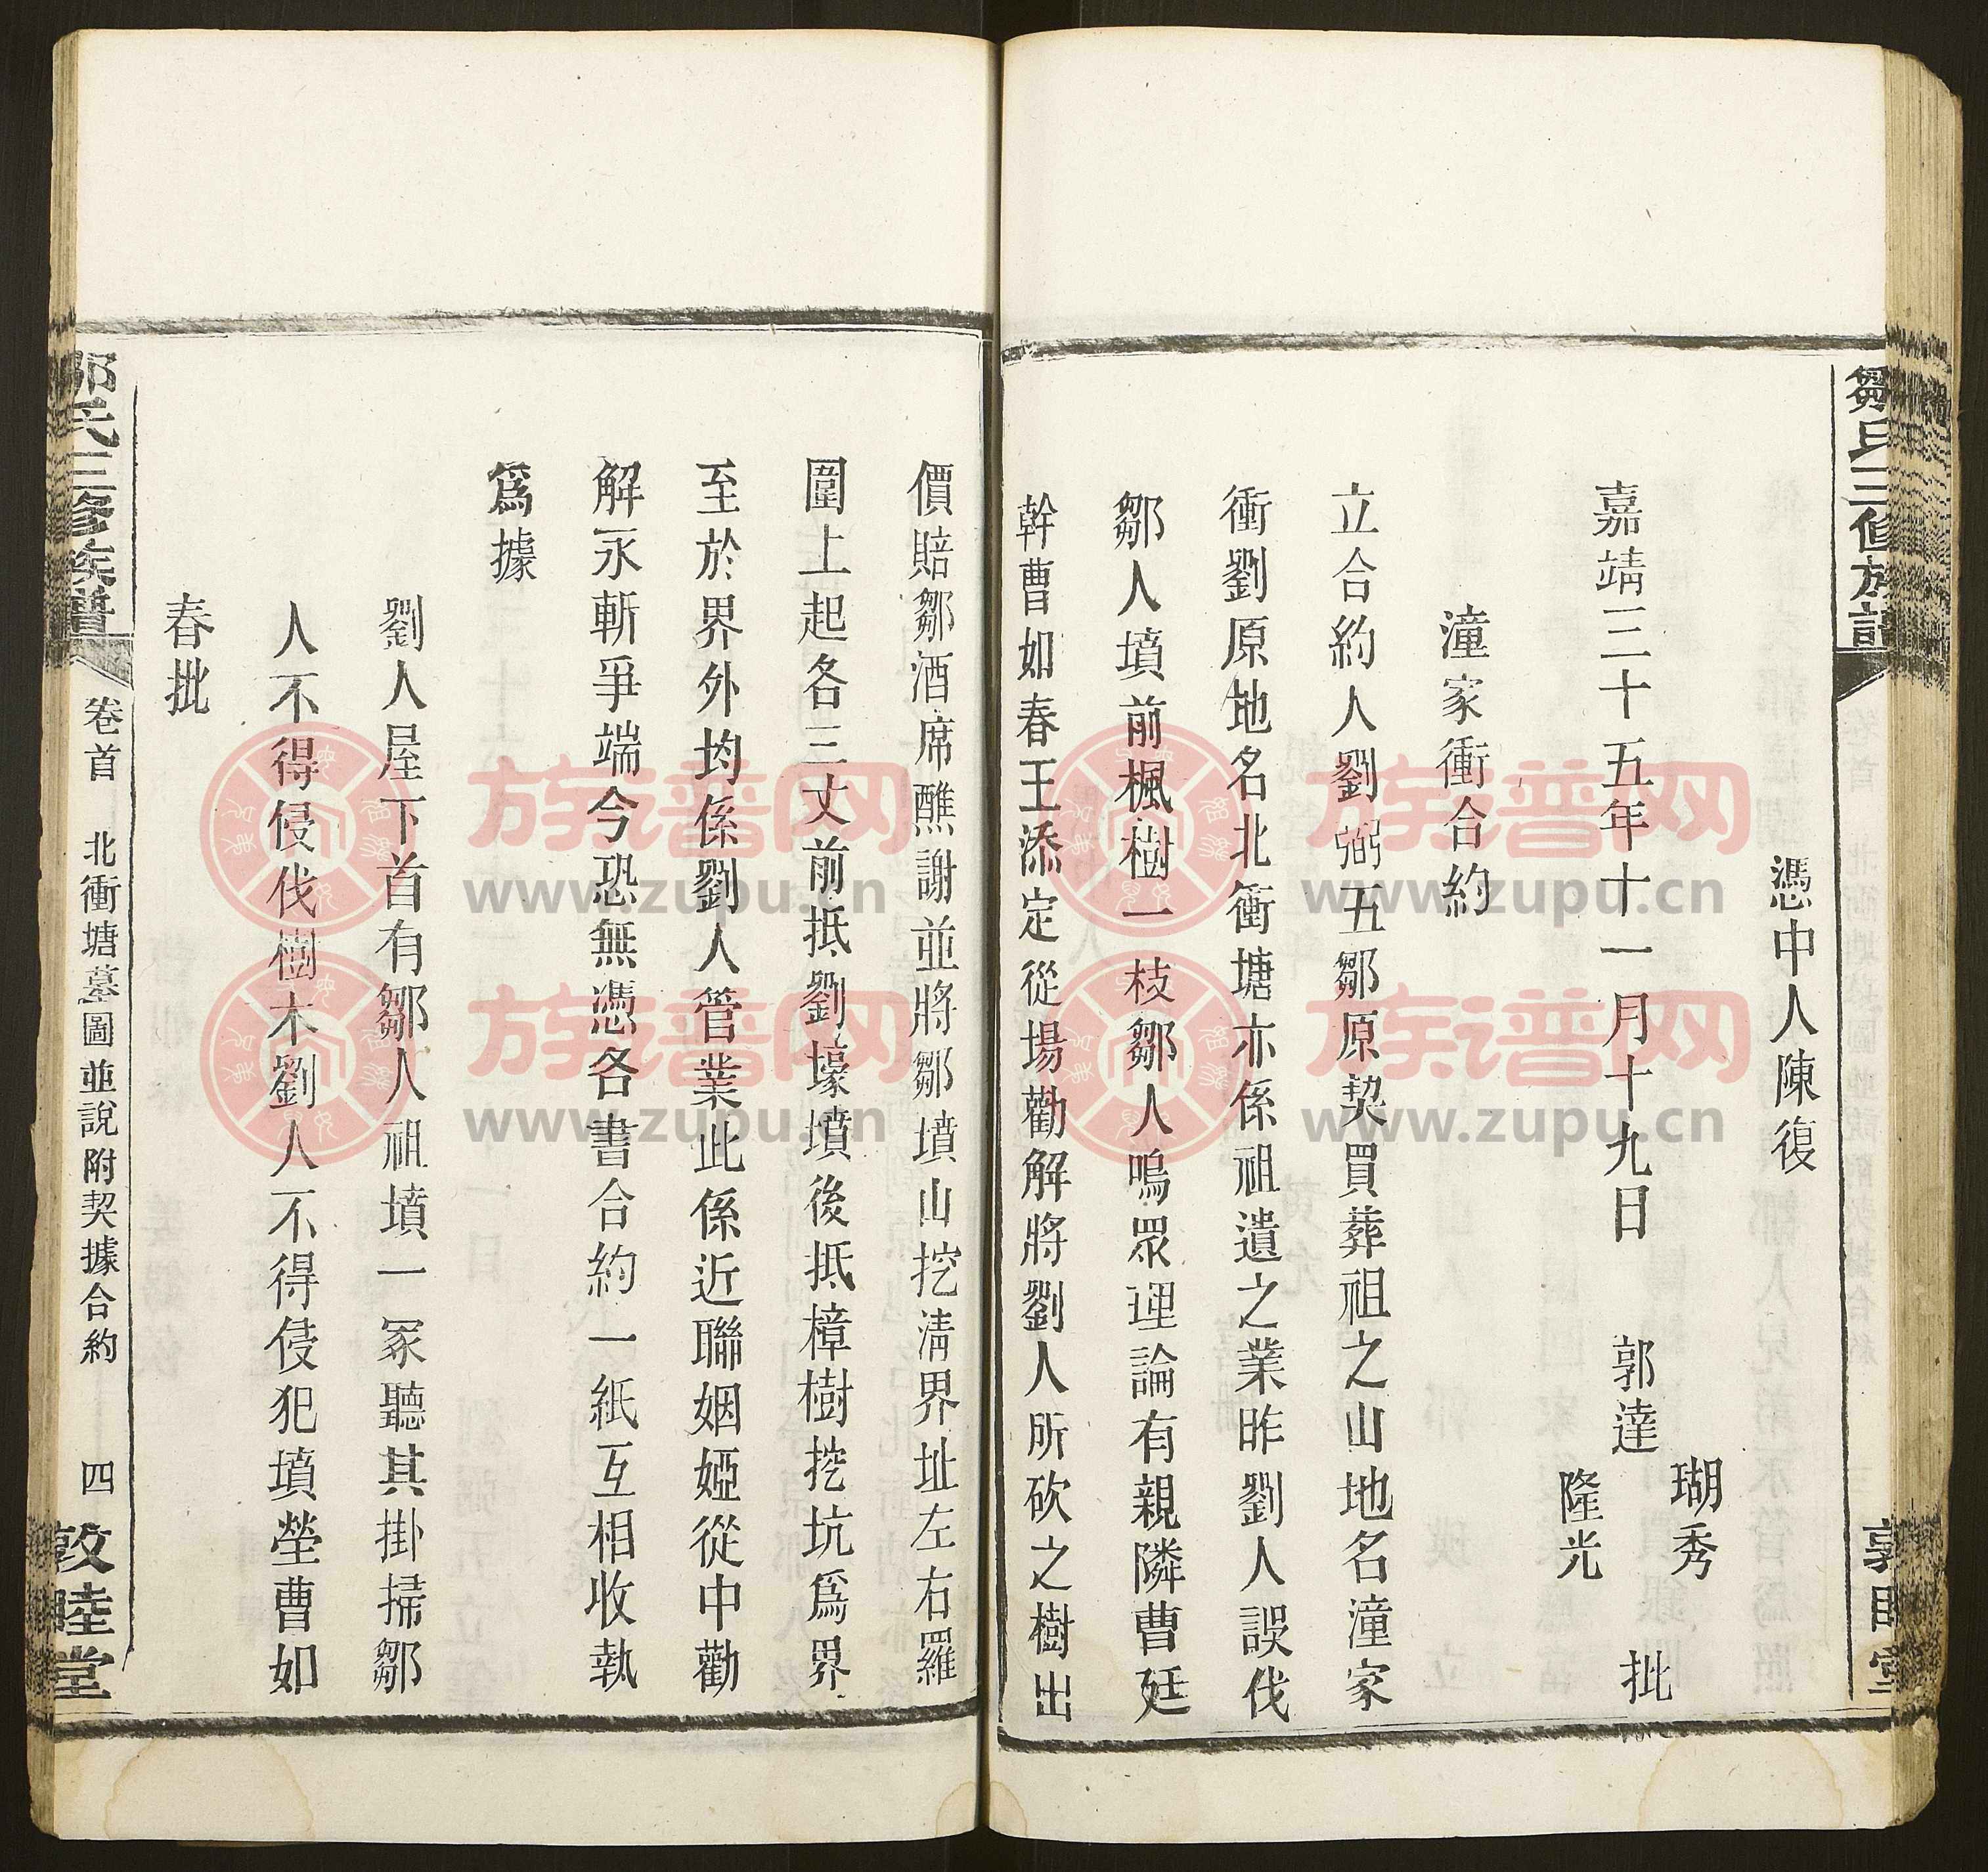 鄒氏三修族譜
憑中人陳復
瑚秀
嘉靖三十五年十一月十九日 郭達 批
隆光
潼家衝合約
立合約人劉弼五鄒原契買葬祖之山地名潼家
衝劉原地名北衝塘亦係祖遺之業昨劉人誤伐
鄒人墳前楓樹一枝鄒人鳴眾理論有親隣曹廷
幹曹如春王添定從場勸解將劉人所砍之樹出
價賠鄒酒席醮謝並將鄒墳山挖淸界址左右羅
圍上起各三丈前抵劉壕墳後抵樟樹挖坑爲界
至於界外均係劉人管業此係近聯姻婭從中勸
解永斬爭端今恐無憑各書合約一紙互相收執
爲據
劉人屋下首有鄒人祖墳一冢聽其掛掃鄒
人不得侵伐樹木劉人不得侵犯墳塋曹如
春批
鄒氏三修族譜 卷首 北衝塘墓圖並說附契據合約 四 敦睦堂
族谱网
www.zupu.cn
族谱网
www.zupu.cn
族谱网
www.zupu.cn
族谱网
www.zupu.cn